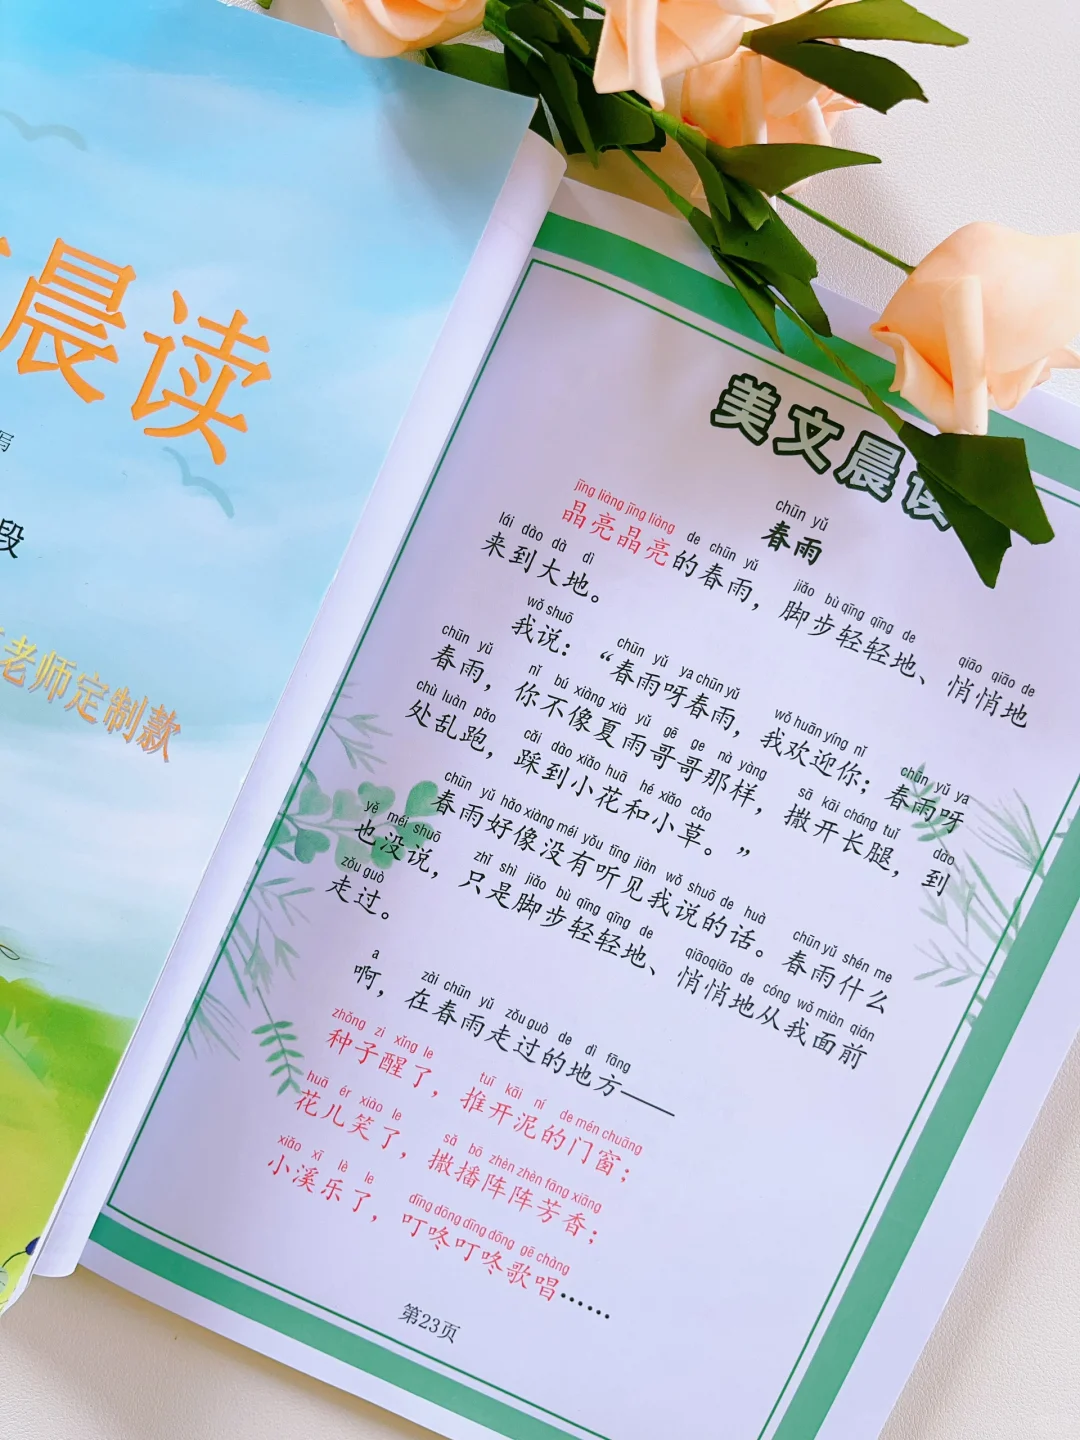 晨读
写
段
老师定制款
美文晨读
chūn yǔ
春雨
jīng liàng jīng liàng de chūn yǔ jiǎo bù qīng qīng de qiāo qiāo de
晶亮晶亮的春雨，脚步轻轻地、悄悄地
lái dào dà dì
来到大地。
wǒ shuō chūn yǔ ya chūn yǔ wǒ huān yíng nǐ chūn yǔ ya
我说：“春雨呀春雨，我欢迎你；春雨呀
chūn yǔ nǐ bú xiàng xià yǔ gē ge nà yàng sā kāi cháng tuǐ dào
春雨，你不像夏雨哥哥那样，撒开长腿，到
chù luàn pǎo cǎi dào xiǎo huā hé xiǎo cǎo
处乱跑，踩到小花和小草。”
chūn yǔ hǎo xiàng méi yǒu tīng jiàn wǒ shuō de huà chūn yǔ shén me
春雨好像没有听见我说的话。春雨什么
yě méi shuō zhǐ shì jiǎo bù qīng qīng de qiāoqiāo de cóng wǒ miàn qián
也没说，只是脚步轻轻地、悄悄地从我面前
zǒu guò
走过。
a zài chūn yǔ zǒu guò de dì fāng
啊，在春雨走过的地方——
zhǒng zi xǐng le tuī kāi ní de mén chuāng
种子醒了，推开泥的门窗；
huā ér xiào le sā bō zhèn zhèn fāng xiāng
花儿笑了，撒播阵阵芳香；
xiǎo xī lè le dīng dōng dīng dōng gē chàng
小溪乐了，叮咚叮咚歌唱……
第23页